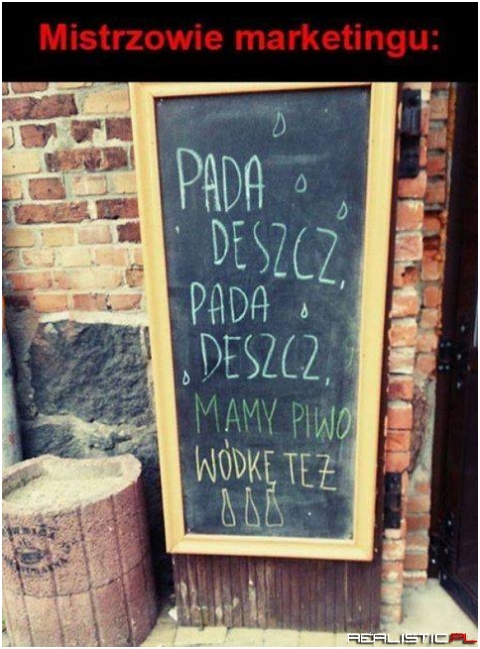 Mistrzowie marketingu:
PADA
DESZCZ,
PADA
DESZCZ,
MAMY PIWO
WÓDKĘ TEŻ
REALISTIC.PL